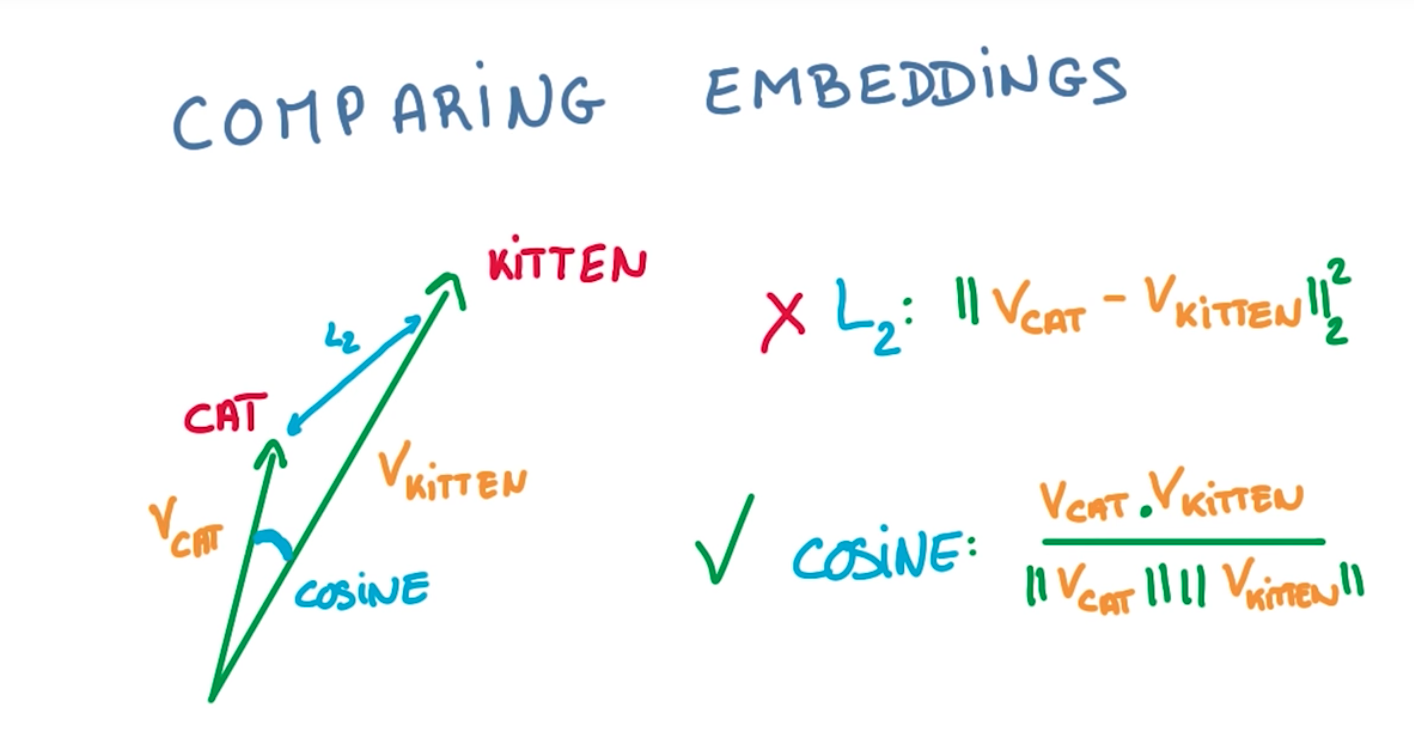 COMPARiNG EMBEDDiNGS
KiTTEN
L₂
CAT
V_KiTTEN
V_CAT
COSiNE
X L₂: ||V_CAT - V_KiTTEN||₂²
✓ COSiNE:
V_CAT . V_KiTTEN
||V_CAT|| ||V_KiTTEN||